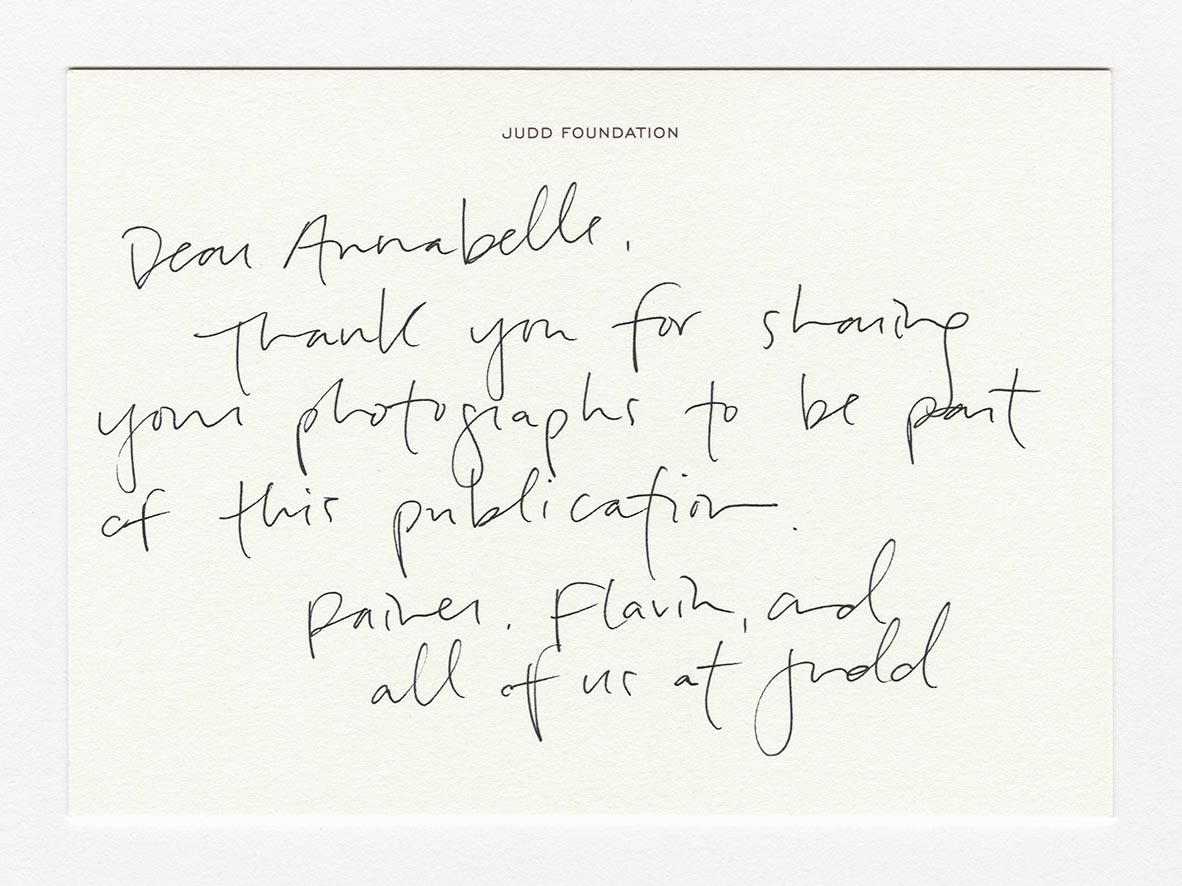 JUDD FOUNDATION
Dear Annabelle,
Thank you for sharing
your photographs to be part
of this publication.
Rainer, Flavin, and
all of us at Judd